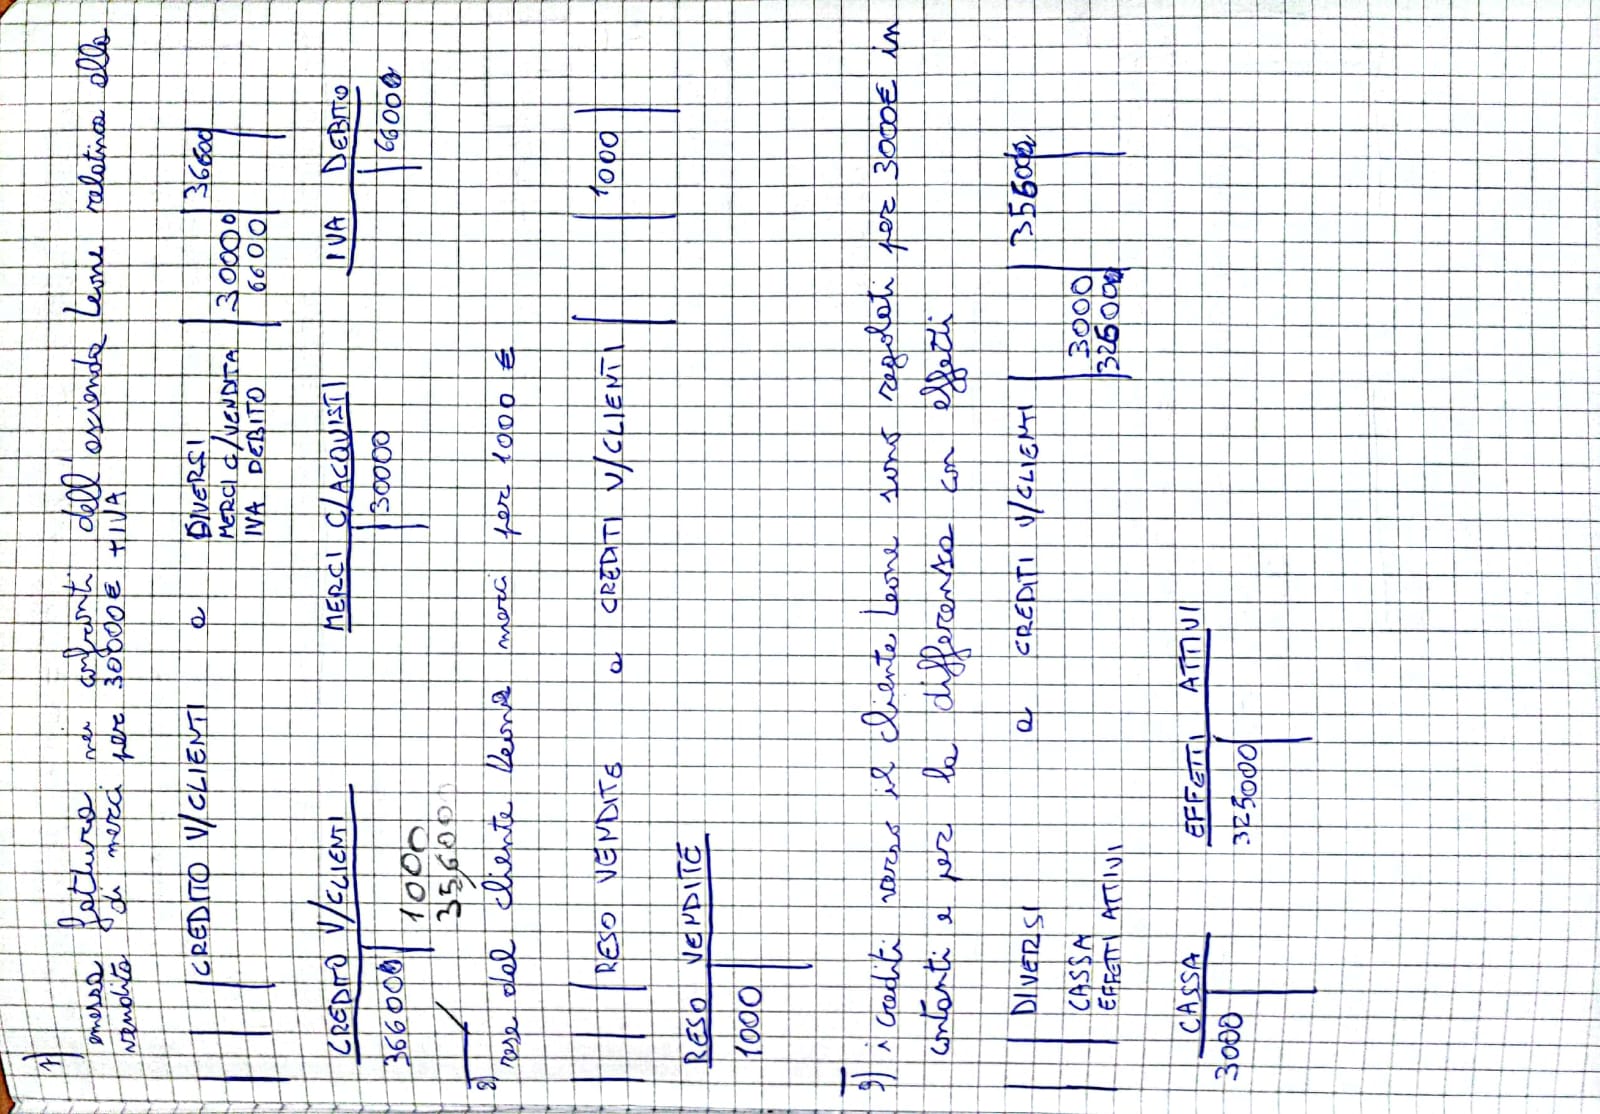 1)
emessa fattura nei confronti dell'azienda Leone relativa alla
vendita di merci per 30000€ + IVA
CREDITO V/CLIENTI a DIVERSI 36600
MERCI C/VENDITA 30000
IVA DEBITO 6600
CREDITO V/CLIENTI MERCI C/ACQUISTI IVA DEBITO
36600 30000 6600
1000
35,600
2)
rese dal cliente Leone merci per 1000 €
RESO VENDITE a CREDITI V/CLIENTI 1000
RESO VENDITE
1000
3) i crediti verso il cliente Leone sono regolati per 3000€ in
contanti e per la differenza con effetti
DIVERSI a CREDITI V/CLIENTI 35600
CASSA 3000
EFFETTI ATTIVI 32600
CASSA EFFETTI ATTIVI
3000 325000